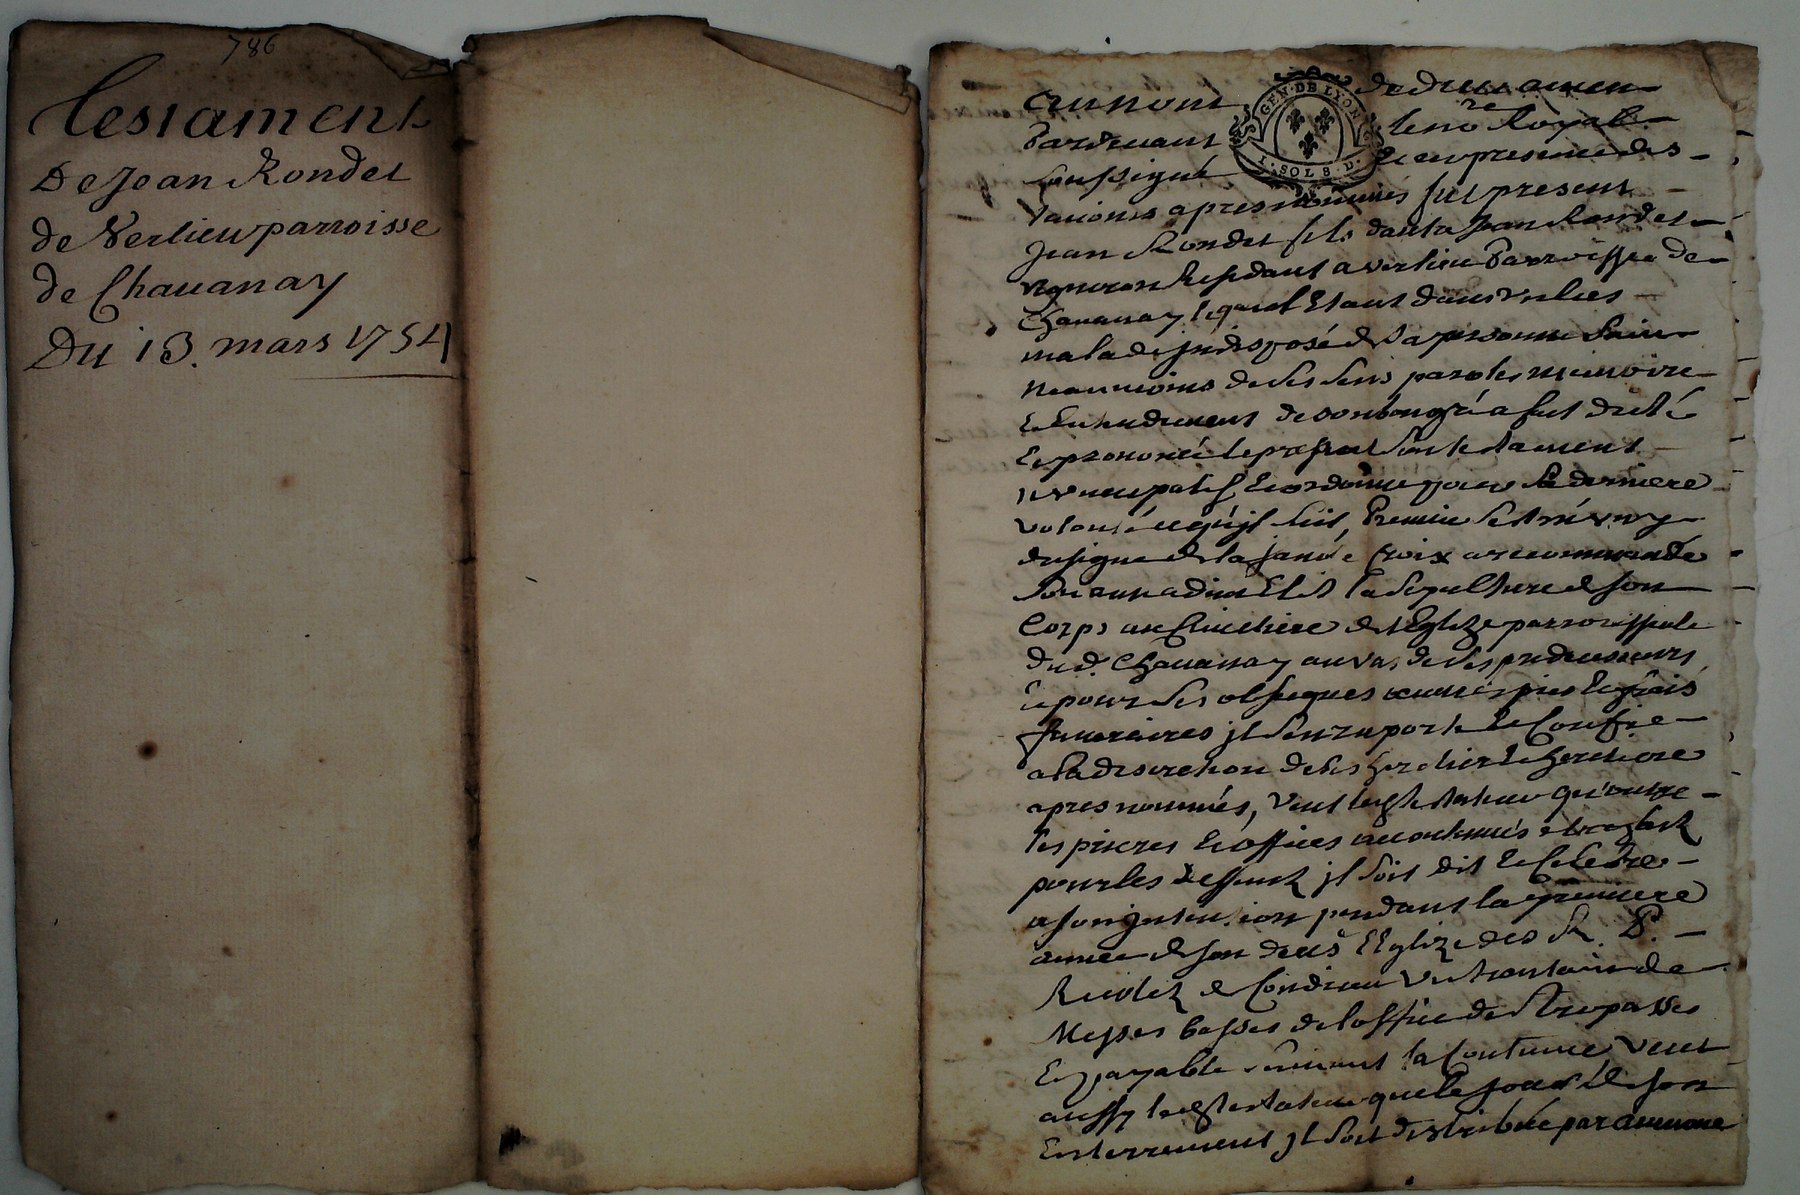 786
Testament
De Jean Rondet
de Verlieu parroisse
de Chauanay
Du 13. mars 1754
GEN. DE LYON
1. SOL 8. D.
Au nom de Dieu amen
Pardeuant le no.re Royal
soussigné et en presence des
tesmoins apres nommés fut present
Jean Rondet fils dauta Jean Rondet
vigneron residant a verlieu Parroisse de
Chauanay lequel Etant dans
malade indisposé de sa personne sain
neanmoins de ses sens parolles memoire
Et Entendement de son bon gré a fait dicté
Et prononcé le present son testament
nuncupatif Et ordonnance de derniere
volonté ce qu'jl suit, Premier s'est muny
du signe de la sainte Croix a recommandé
son ame a dieu Elit la sepulture de son
Corps au Cimetiere de l'Eglize parroissialle
dud. Chauanay au vas de ses predecesseurs
Et pour ses obseques œuures pies Et frais
funeraires jl s'en raporte Et Confie
a la discretion de ses heritier Et heritiere
apres nommés, veut led. testateur qu'outre
les prieres Et offices accoutumés Etre faits
pour les deffunts jl soit dit Et Celebré
a son jntention pendant la premiere
année de son deces l'Eglize des R. P.
Recolets de Condrieu vne trentaine de
Messes basses de l'office des Trepassés
Et payable suiuant la Coutume, veut
aussy led. testateur que le jour de son
Enterrement jl soit distribué par aumone